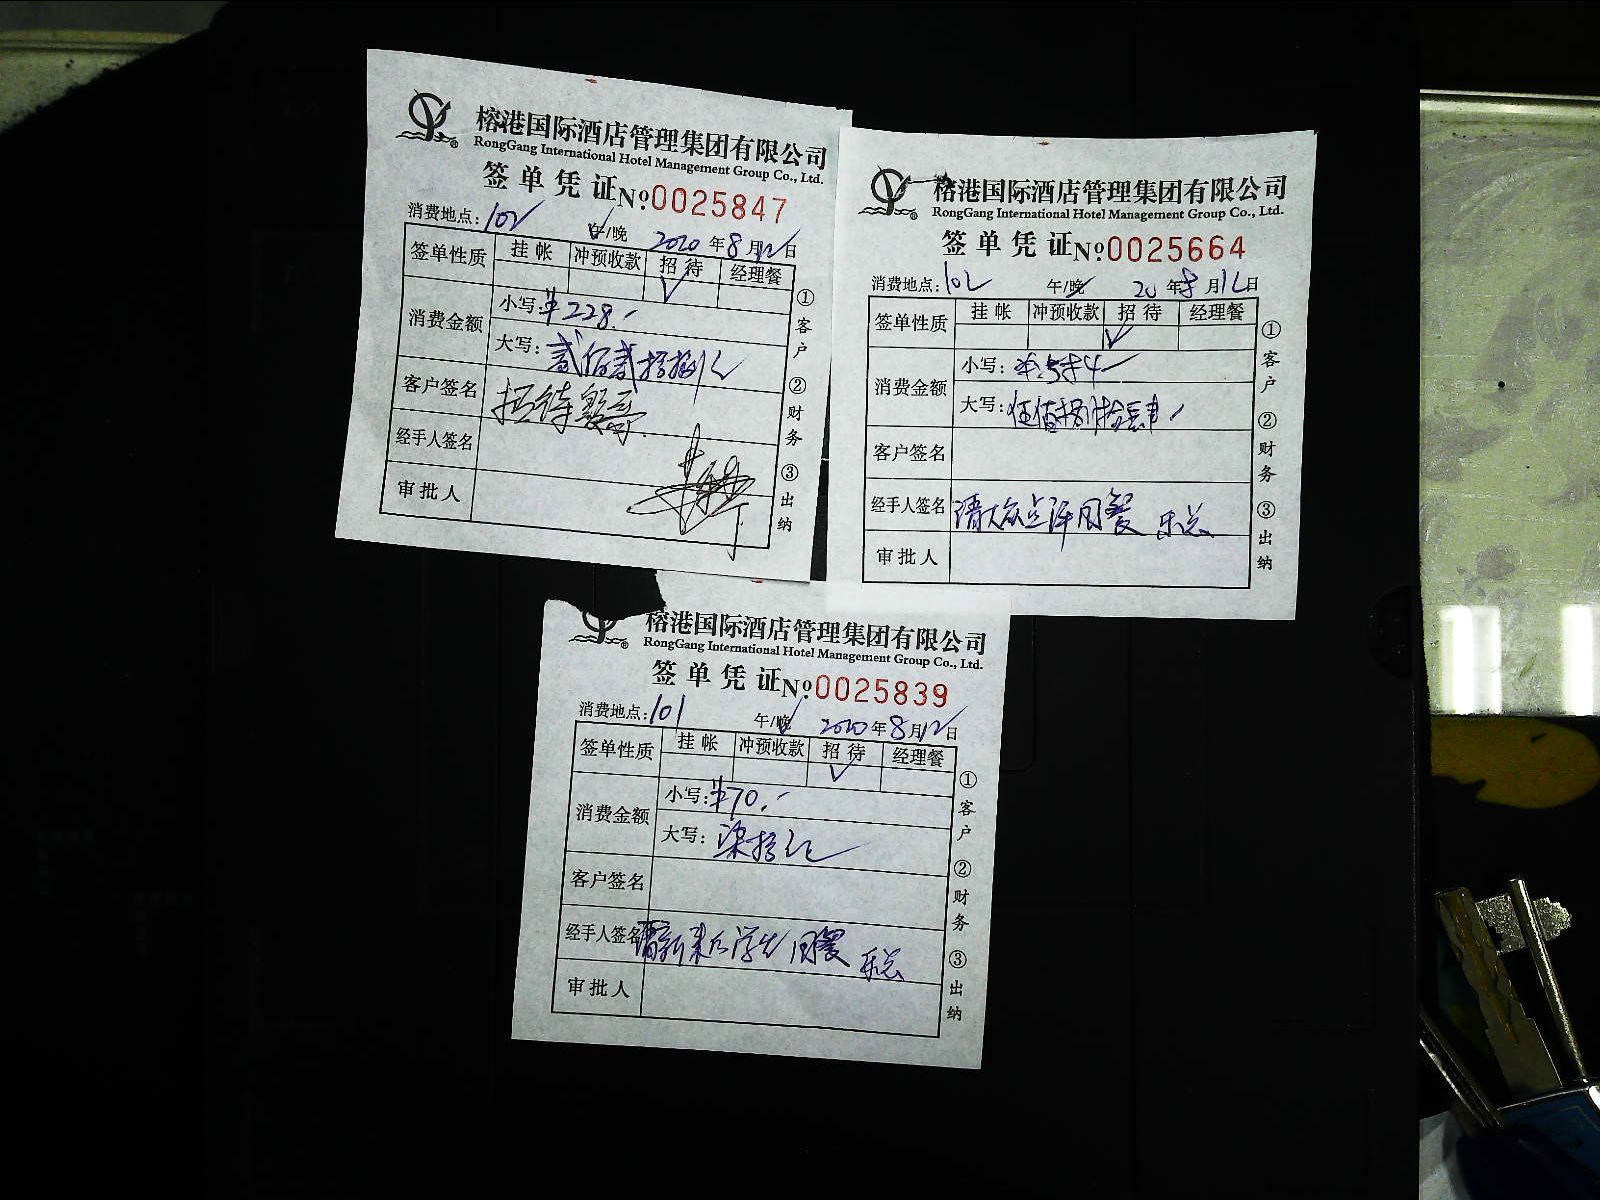 榕港国际酒店管理集团有限公司
RongGang International Hotel Management Group Co., Ltd.
签单凭证 №0025847
消费地点:102 午/晚 2020年8月12日
签单性质 挂帐 冲预收款 招待 经理餐
小写:¥228.-
消费金额
大写:贰佰贰拾捌元
客户签名 招待
经手人签名
审批人
①客户 ②财务 ③出纳
榕港国际酒店管理集团有限公司
RongGang International Hotel Management Group Co., Ltd.
签单凭证 №0025664
消费地点:102 午/晚 20年8月12日
签单性质 挂帐 冲预收款 招待 经理餐
小写:
消费金额
大写:伍佰捌拾肆
客户签名
经手人签名 请大众点评用餐 乐总
审批人
①客户 ②财务 ③出纳
榕港国际酒店管理集团有限公司
RongGang International Hotel Management Group Co., Ltd.
签单凭证 №0025839
消费地点:101 午/晚 2020年8月12日
签单性质 挂帐 冲预收款 招待 经理餐
小写:¥70.-
消费金额
大写:柒拾元
客户签名
经手人签名 请新来的学生用餐 乐总
审批人
①客户 ②财务 ③出纳